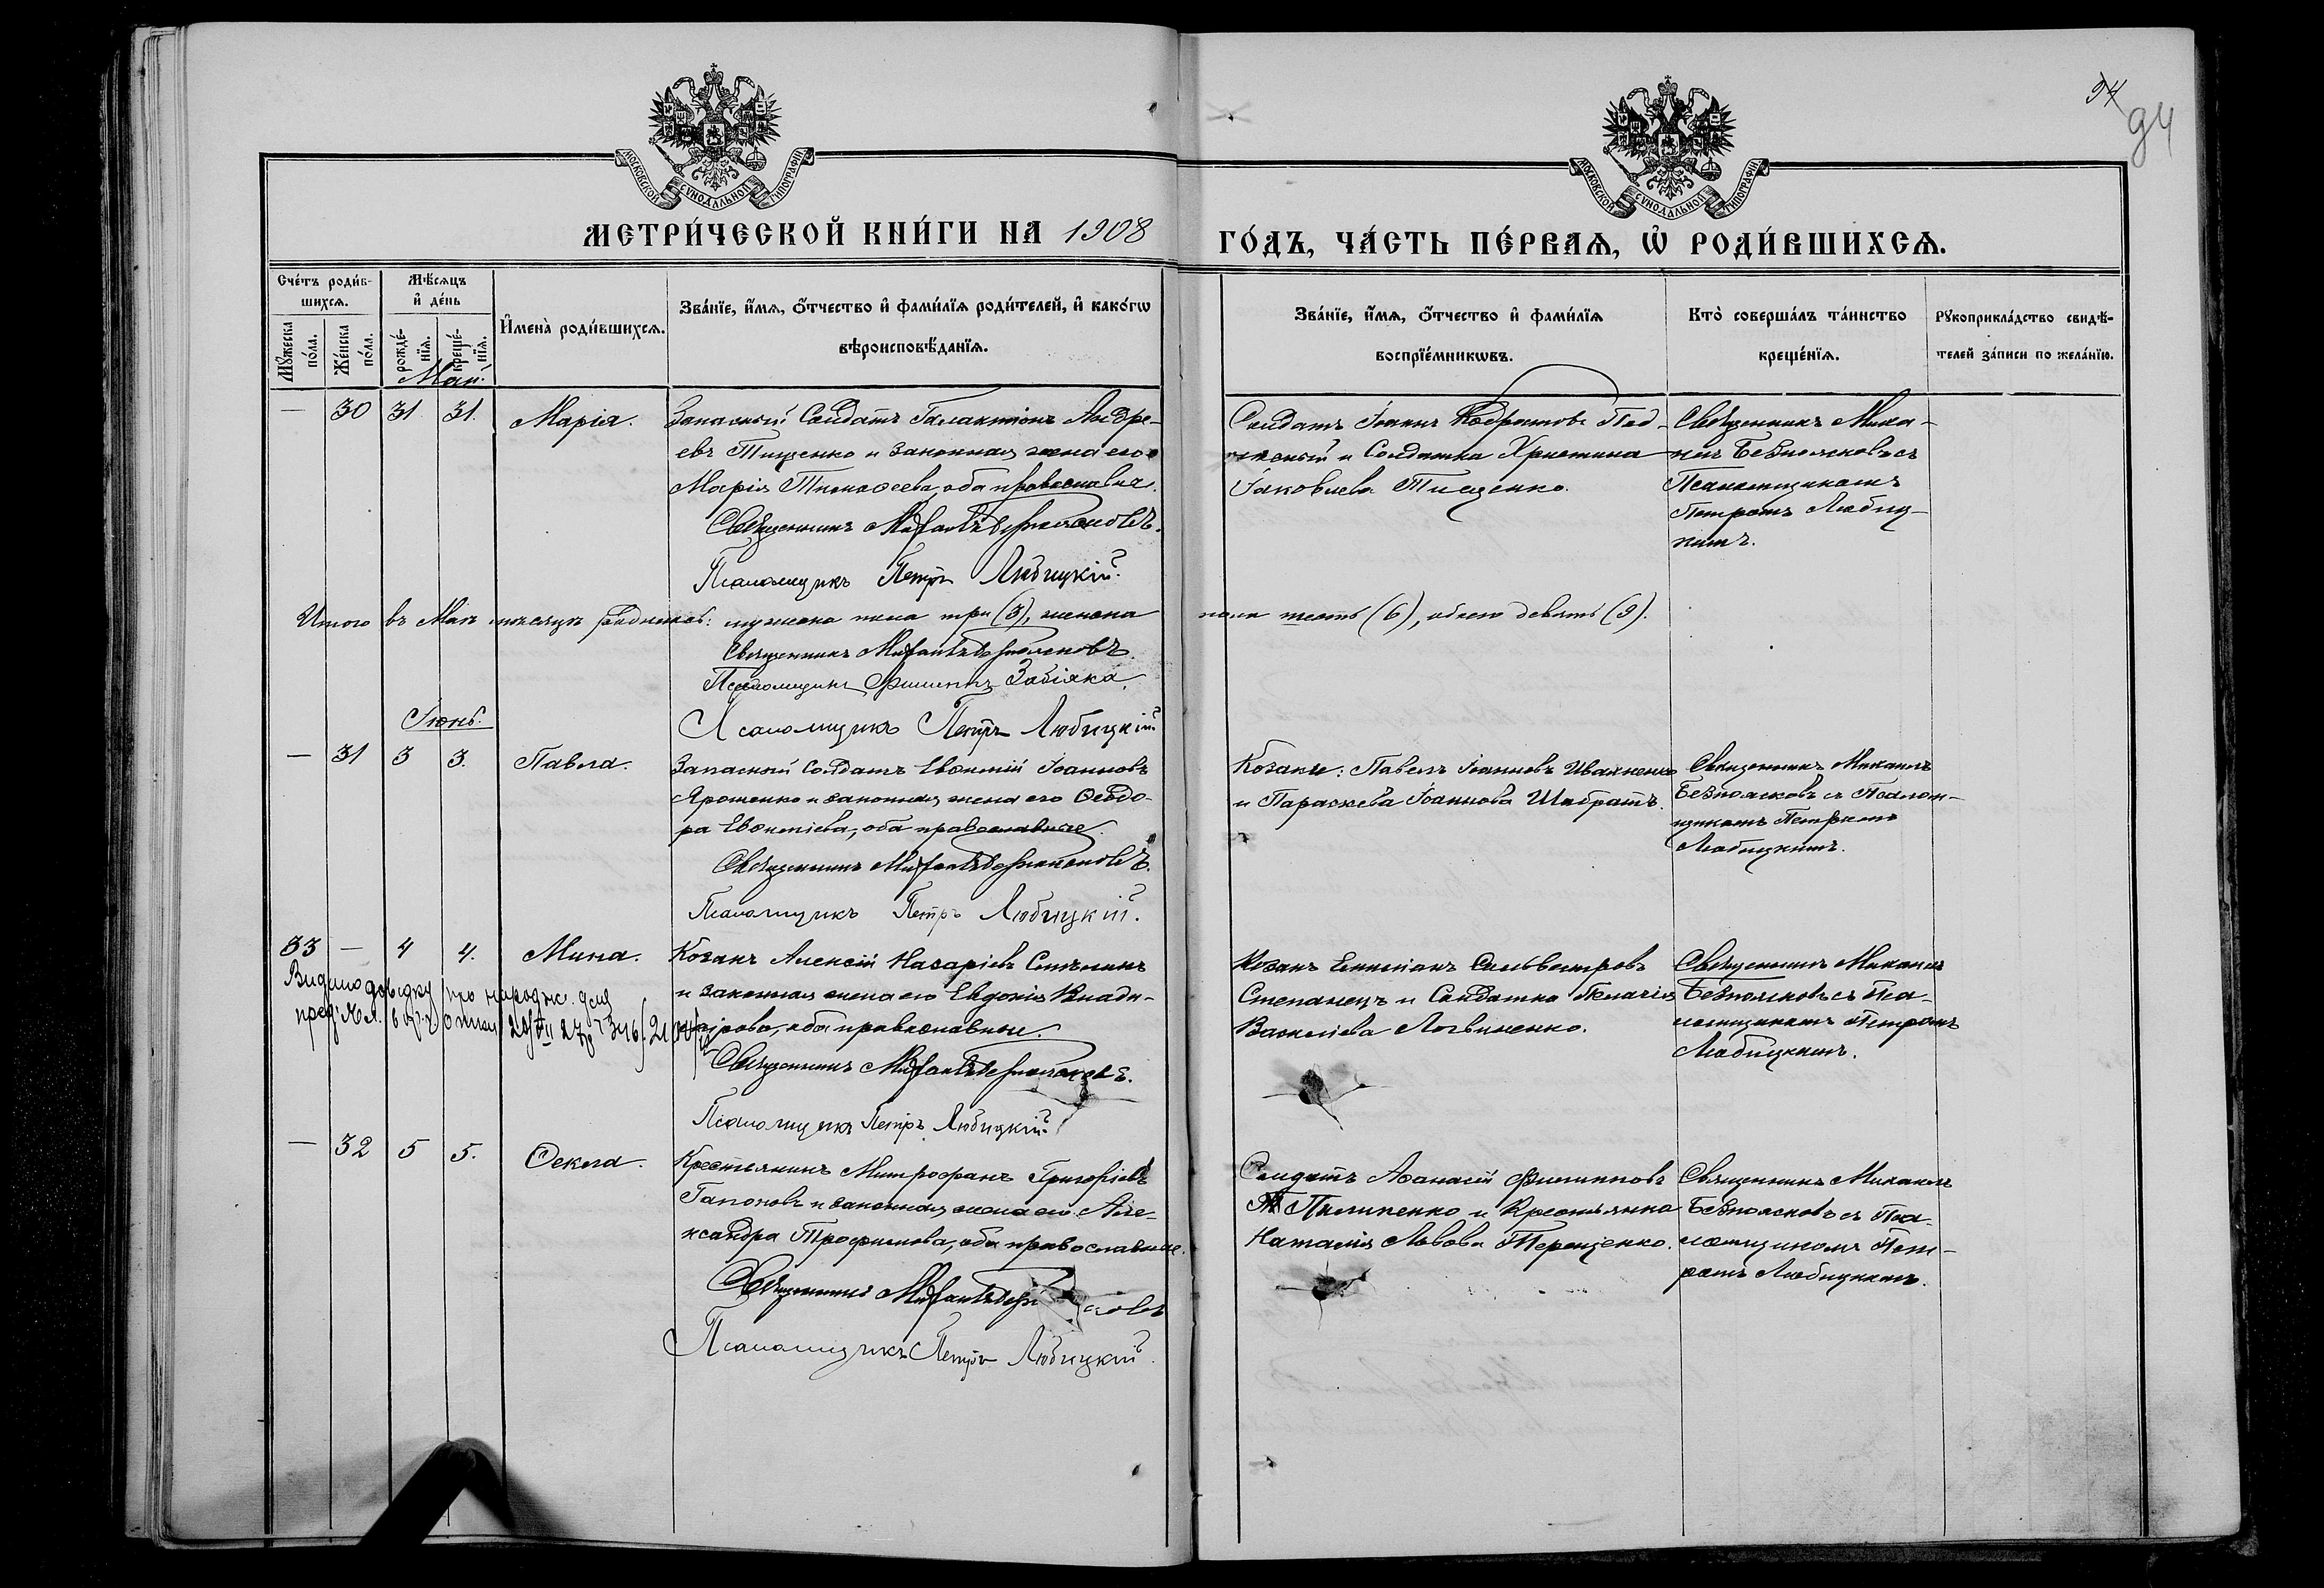 94
94
МОСКОВСКОЙ СѴНОДАЛЬНОЙ ТИПОГРАФІИ
МОСКОВСКОЙ СѴНОДАЛЬНОЙ ТИПОГРАФІИ
МЕТРИ́ЧЕСКОЙ КНИ́ГИ НА 1908
ГО́ДЪ, ЧА́СТЬ ПЕ́РВАѦ, Ѡ҆ РОДИ́ВШИХСѦ.
Сче́тъ роди́в-
шихсѧ.
Мꙋ́жеска
по́ла.
Же́нска
по́ла.
Мѣ́сѧцъ
и҆ де́нь
рожде́-
нїѧ.
креще́-
нїѧ.
И҆мена̀ роди́вшихсѧ.
Зва́нїе, и҆́мѧ, ѻ҆́тчество и҆ фами́лїѧ роди́телей, и҆ како́гѡ
вѣроисповѣ́данїѧ.
Зва́нїе, и҆́мѧ, ѻ҆́тчество и҆ фами́лїѧ
воспрїе́мникѡвъ.
Кто̀ соверша́лъ та́инство
креще́нїѧ.
Рꙋкоприкла́дство свидѣ́-
телей за́писи по жела́нїю.
Май.
— 30 31 31. Марія.
Запасный Солдатъ Галактіонъ Андре-
евъ Тищенко и законная жена его
Марія Тимоѳеева, оба православные.
Священникъ Михаилъ Безпоясковъ.
Псаломщикъ Петръ Любицкій.
Солдатъ Іоаннъ Под-
и Солдатка Христина
Іаковлева Тищенко.
Священникъ Миха-
илъ Безпоясковъ съ
Псаломщикомъ
Петромъ Любиц-
кимъ.
Итого въ Маѣ мѣсяцѣ родилось: мужеска пола три (3), женска
пола шесть (6), обоего девять (9).
Священникъ Михаилъ Безпоясковъ.
Псаломщикъ Филиппъ Забіяка.
Псаломщикъ Петръ Любицкій
Іюнь.
— 31 3 3. Павла.
Запасный Солдатъ Евѳимій Іоанновъ
Ярошенко и законная жена его Ѳеодо-
ра Евѳиміева, оба православные.
Священникъ Михаилъ Безпоясковъ.
Псаломщикъ Петръ Любицкій.
Козаки: Павелъ Іоанновъ Иваненко
и Параскева Іоаннова Шабратъ.
Священникъ Михаилъ
Безпоясковъ съ Псалом-
щикомъ Петромъ
Любицкимъ.
33 — 4 4. Мина.
Козакъ Алексій Назаріевъ
и законная жена его Евдокія Влади-
мірова, оба православные.
Священникъ Михаилъ Безпоясковъ.
Псаломщикъ Петръ Любицкій
Видано довідку про народж.
Козакъ Емиліанъ Сильвестровъ
Степанецъ и Солдатка Пелагія
Василіева Логвиненко.
Священникъ Михаилъ
Безпоясковъ съ Пса-
ломщикомъ Петромъ
Любицкимъ.
— 32 5 5. Ѳекла.
Крестьянинъ Митрофанъ Григоріевъ
Гапоновъ и законная жена его Але-
ксандра Трофимова, оба православные.
Священникъ Михаилъ Безпоясковъ
Псаломщикъ Петръ Любицкій.
Солдатъ Аѳанасій Филипповъ
Пилипенко и Крестьянка
Наталія Львова Терещенко.
Священникъ Михаилъ
Безпоясковъ съ Пса-
ломщикомъ Пет-
ромъ Любицкимъ.